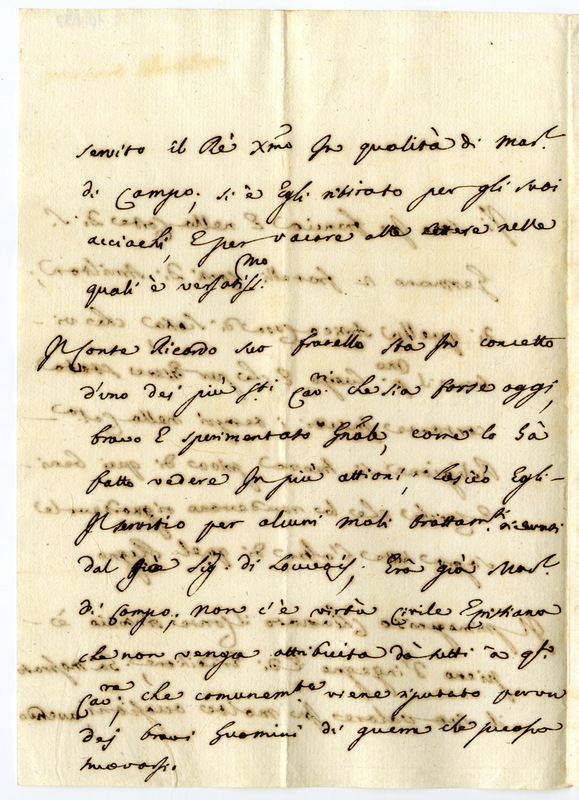 servito il Rè Xmo In qualità di Mar.l
di Campo, si è Egli ritirato per gli suoi
acciachi, E per vacare alle lettere nelle
quali è versatiss.mo
Il Conte Ricardo suo fratello stà In concetto
d'uno dei più sti Cav.ri che sia forse oggi,
bravo E sperimentato Gnãle, come lo hà
fatto vedere In più attioni, lasciò Egli
Il servitio per alcuni mali trattam.ti ricevuti
dal già Sig. di Louvois, Erà già Mar.l
di Campo, non c'è virtù Civile E
che non venga attribuita dà tutti à qsto
Cav.re che comunem.te viene riputato per un
dei bravi huomini di guerra che possa
trovarsi.